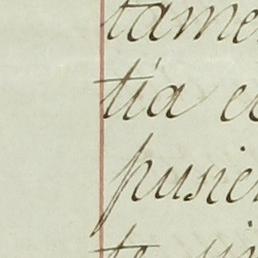 tame
tia e
pusie
te